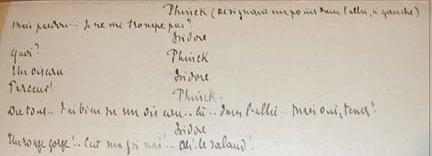 Phinck (désignant un point dans l'allée, à gauche)
Mais pardon... Je ne me trompe pas?
Isidore
Quoi?
Phinck
Un oiseau
Isidore
Farceur!
Phinck.
Dites... J'ai bien vu un oiseau... là... dans l'allée... mais oui, tenez!
Isidore
Un rouge gorge!.. C'est ma foi vrai!.. Ah! le salaud!